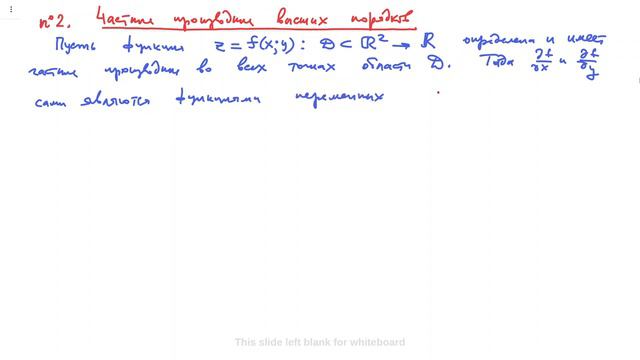 n°2. Частные производные высших порядков
Пусть функция z = f(x;y): D ⊂ R² → R определена и имеет
частные производные во всех точках области D. Тогда ∂f/∂x и ∂f/∂y
сами являются функциями переменных
This slide left blank for whiteboard